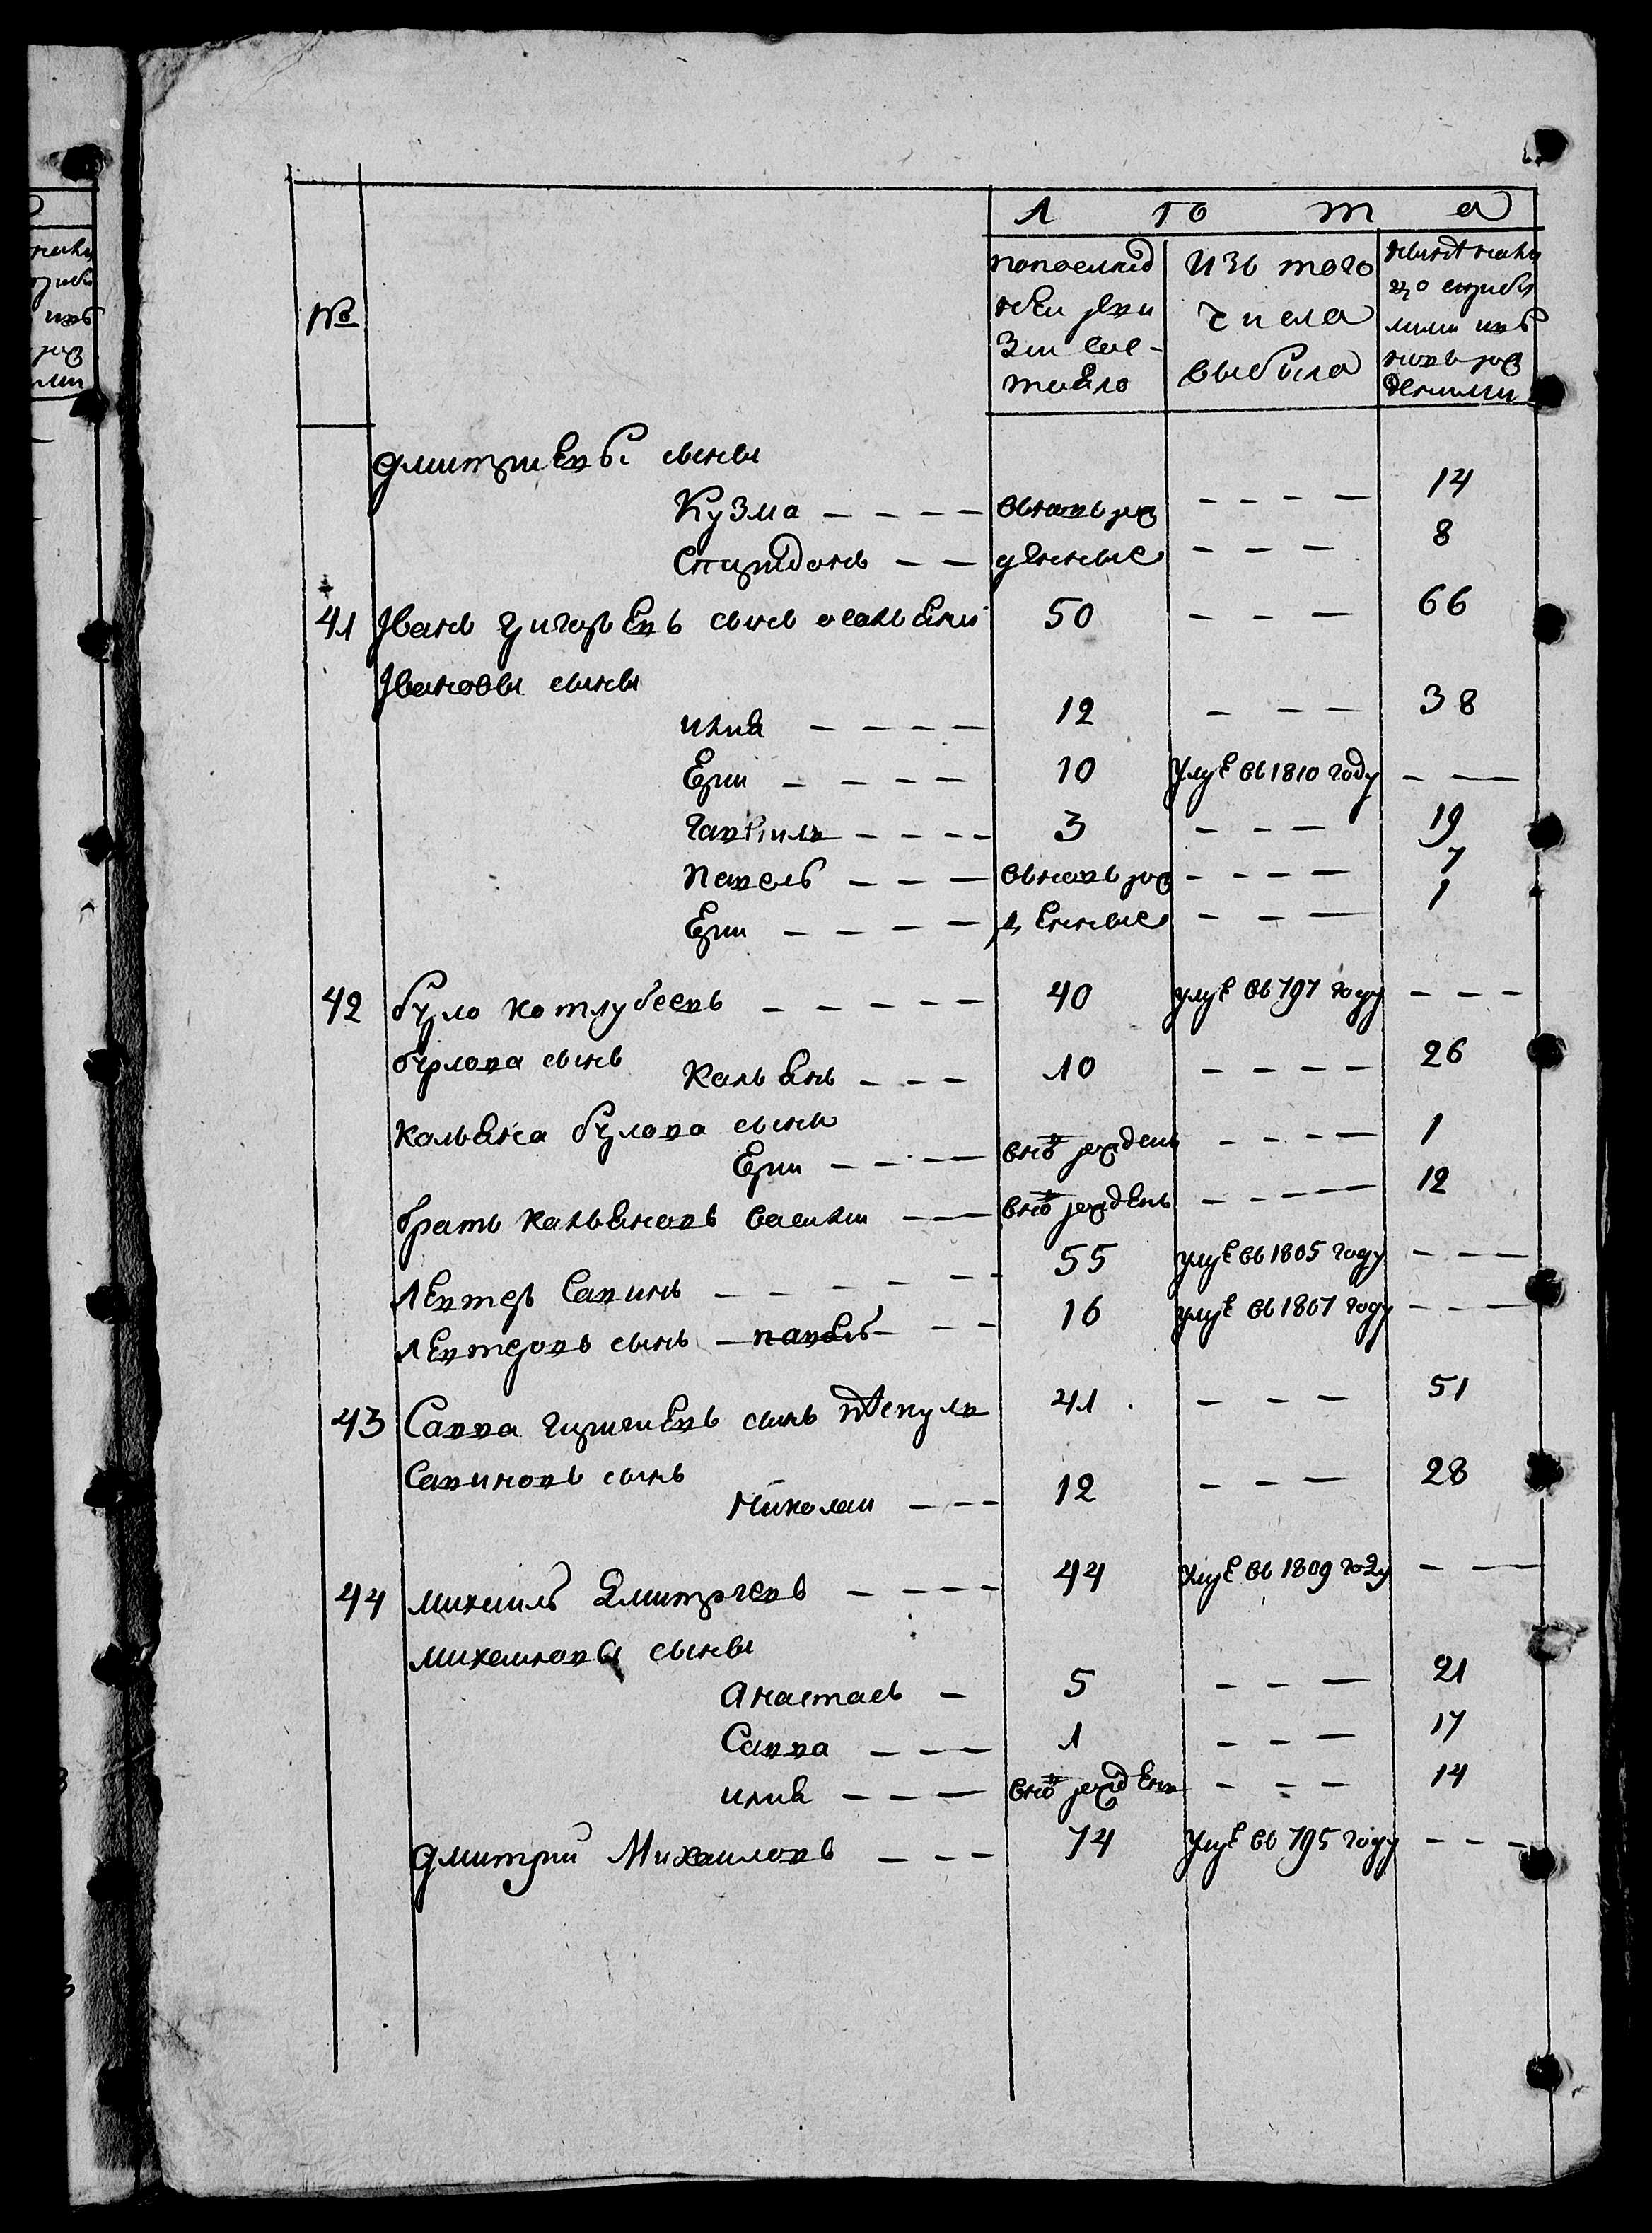 №
Л ѣ т а
попослед
ней реви
зии сос-
тояло
изъ того
числа
выбыло
ныне на
лицо съприбы
лыми и въ
новь рож
денными
Дмитриевы сыны
Кузма — — — — въновь рож — — — — 14
Спиридонъ — — денные — — — 8
41 Иванъ Григорьевъ сынъ 50 — — — 66
Ивановы сыны
Илия — — — — 12 — — — 38
Ери — — — — 10 умре въ 1810 году — —
Гавриилъ — — — — 3 — — — 19
Павелъ — — — въновь рож — — — — 7
Ери — — — — денные — — — 1
42 Бурло Котлубеевъ — — — — — 40 умре въ 797 году — — —
Бурлова сынъ Кальянъ — — — 10 — — — — 26
Кальяна Бурлова сынъ
Ери — — — — вно рожденъ — — — — 1
братъ Кальяновъ Василий — — вно рожденъ — — — — — 12
Левтеръ Савинъ — — — — — — 55 умре въ 1805 году — — —
Левтеровъ сынъ — Павелъ — — — 16 умре въ 1807 году — — —
43 Савва сынъ 41 — — — 51
Савиновъ сынъ
Николаи — — — 12 — — — 28
44 Михаилъ Дмитриевъ — — — — 44 умре въ 1809 году — —
Михаиловы сыны
Анастасъ — 5 — — — 21
Савва — — — 1 — — — 17
Илия — — — вно рожденъ — — — 14
Дмитрии Михаиловъ — — — 74 умре въ 795 году — — —